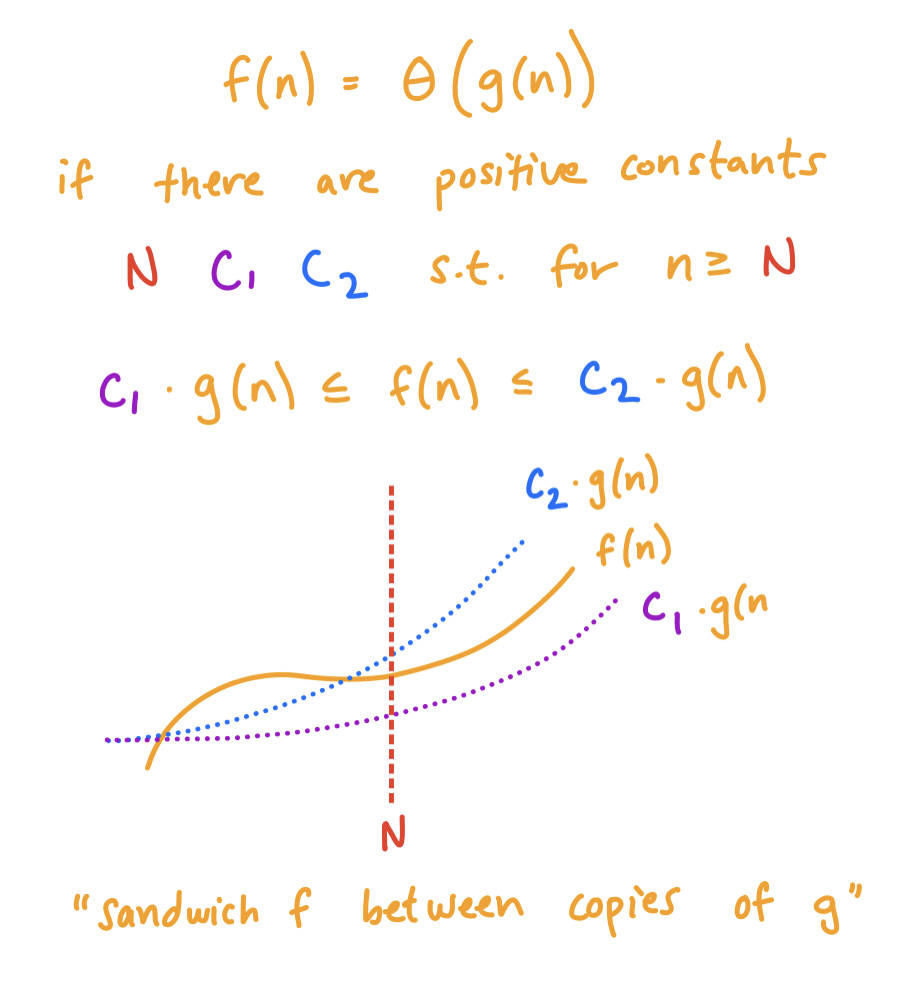 f(n) = θ(g(n))
if there are positive constants
N C₁ C₂ s.t. for n ≥ N
C₁ · g(n) ≤ f(n) ≤ C₂ · g(n)
C₂ · g(n)
f(n)
C₁ · g(n
N
"sandwich f between copies of g"